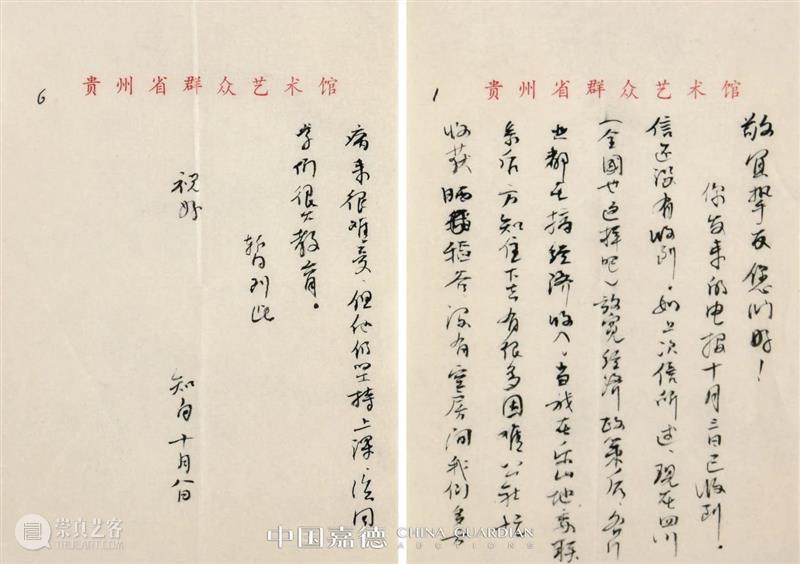 贵州省群众艺术馆
1
敬宜挚友您们好!
你发来的电报十月三日已收到。
信还没有收到。如上次信所述,现在四川
(全国也这样吧)放宽经济政策后,各行
业都在搞经济收入。当我在乐山地委联
系后方知住下去有很多困难 公社忙
收获 稻谷,没有空房间我们
贵州省群众艺术馆
6
病来很难受,但他仍坚持上课,使同
学们很受教育。
暂到此
祝好
知白 十月八日
中国嘉德 CHINA GUARDIAN
AUCTIONS
崇真艺客